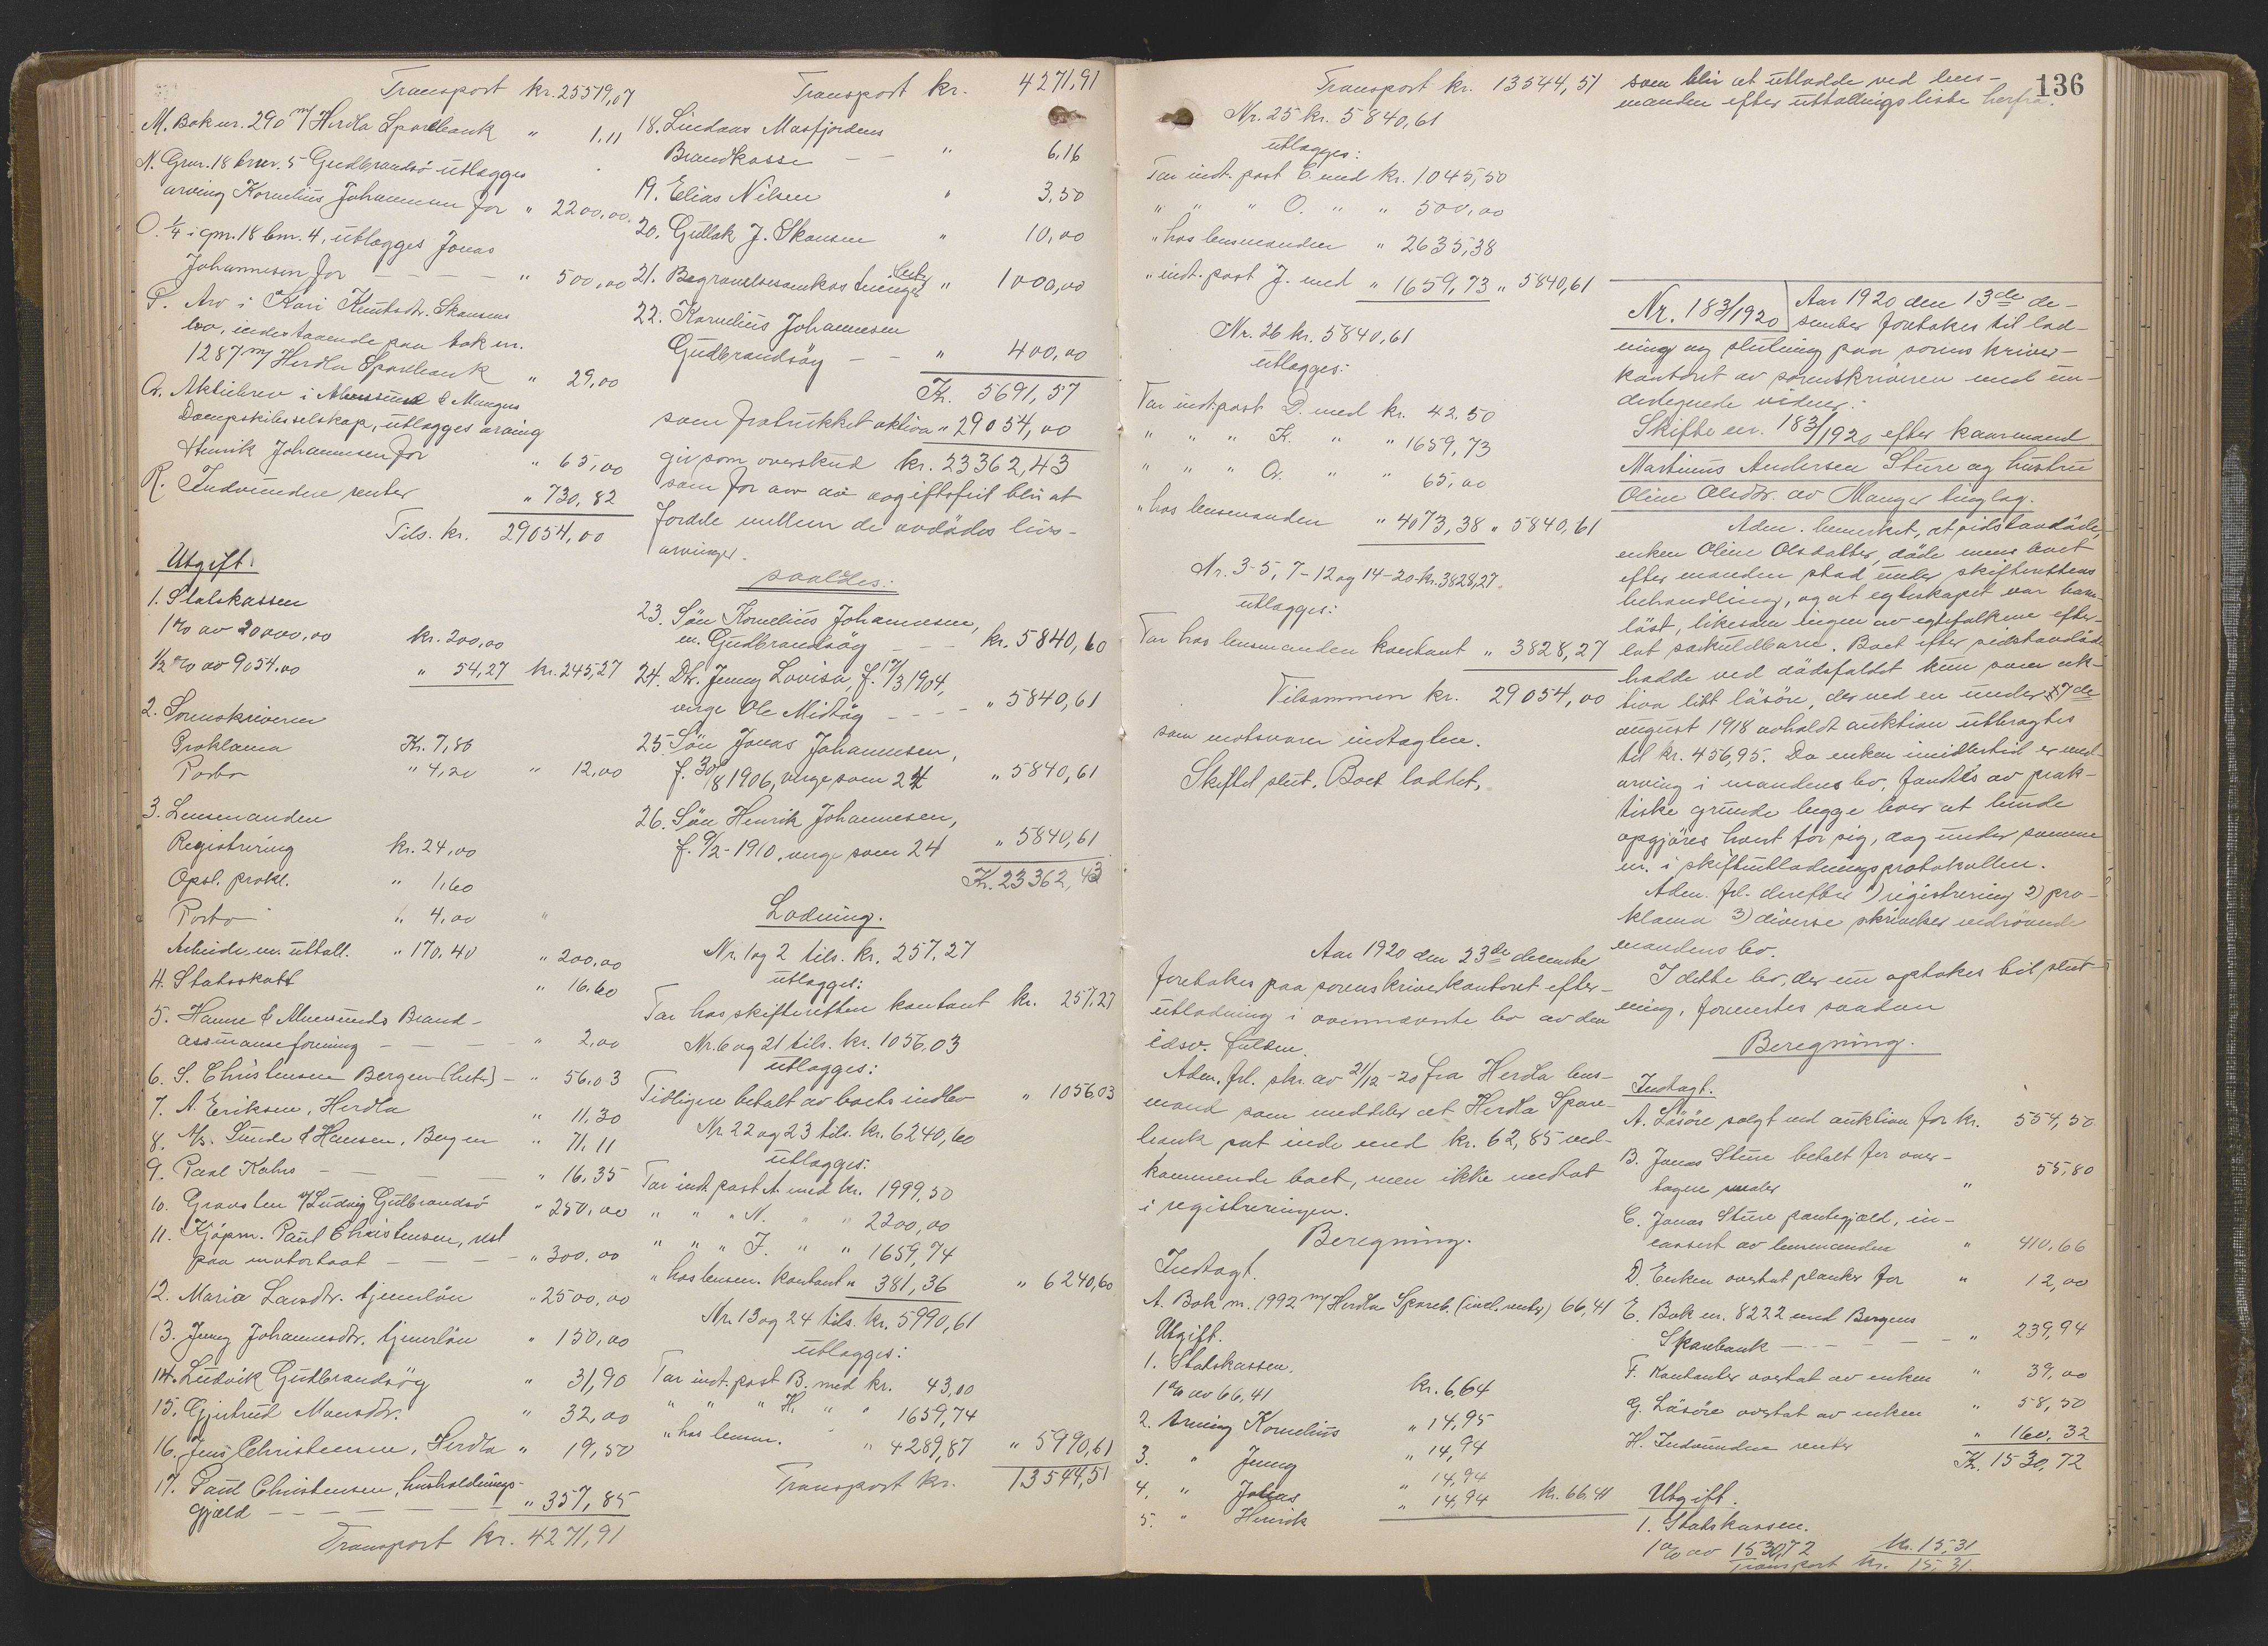 Transport kr. 25579,07
M. Bok nr. 290 m/ Herdla Sparebank " 1,11
N. Gnr. 18 bnr. 5 Gudbrandsö utlægges
arving Kornelius Johannesen for " 2200,00.
O. 1/4 i gnr. 18 bnr. 4, utlægges Jonas
Johannesen for - - - - " 500,00
P. Arv i Kari Knutsdtr. Skansens
bo, indestaaende paa bok nr.
1287 m/ Herdla Sparebank " 29,00
Q. Aktiebrev i & Manger
Dampskibsselskap, utlægges arving
Henrik Johannesen for " 65,00
R. Indvundne renter " 730,82
Tils. kr. 29054,00
Utgift.
1. Statskassen
1% av 20000,00 kr. 200,00
1/2 % av 9054.00 " 54,27 kr. 245,27
2. Sorenskriveren
Proklama Kr. 7,86
Porto " 4,20 " 12,00
3. Lensmanden
Registrering kr. 24,00
Opsl. prokl. " 1,60
Porto " 4,00 "
Arbeide m. uttall. " 170.40 " 200,00
4. Statsskatt " 16.60
5. Hamre & Brand-
assuranseforening - - - " 2,00
6. S. Christensen Bergen - " 56.03
7. A. Eriksen, Herdla " 11,30
8. A/s. Sunde & Hansen, Bergen " 71,11
9. Paul Kahrs - - - " 16,35
10. Gravsten v/ Ludvig Gulbrandsö " 250,00
11. Kjöpm. Paul Christensen, rest
paa motorbaat - - - " 300,00
12. Maria Larsdtr. tjenerlön " 2500,00
13. Jenny Johannesdtr. tjenerlön " 150,00
14. Ludvik Gulbrandsöy " 31,90
15. Gjertrud Monsdtr. " 32,00
16. Jens Christensen, Herdla " 19,50
17. Paul Christensen, husholdnings-
gjæld - - - - - " 357,85
Transport kr. 4271,91
Transport kr. 4271,91
18. Lindaas Masfjordens
Brandkasse - - " 6,16
19. Elias Nilsen " 3,50
20. Gullak J. Skansen " 10,00
21. Begravelsesomkostninger " 1000,00
22. Kornelius Johannesen
Gudbrandsöy - - " 400,00
Kr. 5691,57
som fratrukket aktiva " 29054,00
gir som overskud kr. 23362,43
som for arv avgiftsfrit blir at
fordele mellem de avdödes livs-
arvinger.
saaledes:
23. Sön Kornelius Johannesen,
m. Gudbrandsöy - - - kr. 5840,60
24. Dtr. Jenny Lovisa, f. 17/3 1904,
verge Ole Midtöy - - - " 5840,61
25. Sön Jonas Johannesen,
f. 30/8 1906, verge som 24 " 5840,61
26. Sön Henrik Johannesen,
f. 9/2 - 1910, verge som 24 " 5840,61
Kr. 23362,43
Lodning.
Nr. 1 og 2 tils. kr. 257.27
utlægges:
Tar hos skifteretten kontant kr. 257.27
Nr. 6 og 21 tils. kr. 1056.03
utlægges:
Tidligere betalt av boets indlev " 1056.03
Nr. 22 og 23 tils. kr. 6240,60
utlægges:
Tar indt. post A. med kr. 1999,50
" " " N. " " 2200,00
" " " F. " " 1659,74
" hos lensm. kontant " 381,36 " 6240,60
Nr. 13 og 24 tils. kr. 5990,61
utlægges:
Tar indt. post B. med kr. 43,00
" " " H. " " 1659,74
" hos lensm. " " 4289,87 " 5990,61
Transport kr. 13544,51
Transport kr. 13544,51
Nr. 25 kr. 5840,61
utlægges:
Tar indt. post C. med kr. 1045,50
" " " O. " " 500,00
" hos lensmanden " 2635,38
" indt. post J. med " 1659,73 " 5840,61
Nr. 26 kr. 5840,61
utlægges:
Tar indt. post D. med kr. 42.50
" " " K. " " 1659,73
" " " Q. " " 65,00
" hos lensmanden " 4073,38 " 5840,61
Nr. 3-5, 7-12 og 14-20 kr. 3828,27.
utlægges:
Tar hos lensmanden kontant " 3828,27
Tilsammen kr. 29054,00
som motsvarer indtægten.
Skiftet slut. Boet loddet,
Aar 1920 den 23de december
foretokes paa sorenskriverkontoret efter-
utlodning i ovennævnte bo av den
edsv. fuldm.
Adm. frl. skr. av 21/12 - 20 fra Herdla lens-
mand som meddeler at Herdla Spare-
bank sat inde med kr. 62,85 ved-
kommende boet, men ikke medtat
i registreringen.
Beregning.
Indtægt.
A. Bok nr. 1992 m/ Herdla Spareb. (incl. renter) 66,41
Utgift.
1. Statskassen.
1 % av 66,41 kr. 6,64
2. Arving Kornelius " 14,95
3. " Jenny " 14,94
4. " Jonas " 14,94
5. " Henrik " 14,94 kr. 66.41
som blir at utlodde ved lens-
manden efter uttallingsliste herfra.
136
Nr. 183/1920
Aar 1920 den 13de de-
sember foretokes til lod-
ning og slutning paa sorenskriver-
kontoret av sorenskriveren med un-
dertegnede vidner:
Skifte nr. 183/1920 efter kaarmand
Martinus Andersen Sture og hustru
Oline Olsdtr. av Manger tinglag.
Adm. bemerket, at sidstavdöde,
enken Oline Olsdatter, döde mens boet
efter manden stod under skifterettens
behandling, og at egteskapet var barn-
löst, likesom ingen av egtefolkene efter-
lot særkuldbarn. Boet efter sidstavdöde
hadde ved dödsfaldet kun som ak-
tiva litt lösöre, der ved en under 27de
august 1918 avholdt auktion utbragtes
til kr. 456,95. Da enken imidlertid er med-
arving i mandens bo, fandtes av prak-
tiske grunde begge boer at burde
opgjöres hvert for sig, dog under samme
nr. i skifteutlodningsprotokollen.
Adm. frl. derefter 1) registrering 2) pro-
klama 3) diverse skrivelser vedrörende
mandens bo.
I dette bo, der nu optokes til slut-
ning, foreventes saadan
Beregning.
Indtægt.
A. Lösöre solgt ved auktion for kr. 554,50
B. Jonas Sture betalt for over-
tagne " 55,80
C. Jonas Sture pantegjæld, in-
cassert av lensmanden " 410.66
D. Enken overtat planker for " 12,00
E. Bok nr. 8222 med Bergens
Sparebank - - - " 239,94
F. Kontanter overtat av enken " 39,00
G. Lösöre overtat av enken " 58,50
H. Indvundne renter " 160,32
Kr. 1530,72
Utgift.
1. Statskassen.
1 % av 1530,72 kr. 15,31
Transport kr. 15,31.